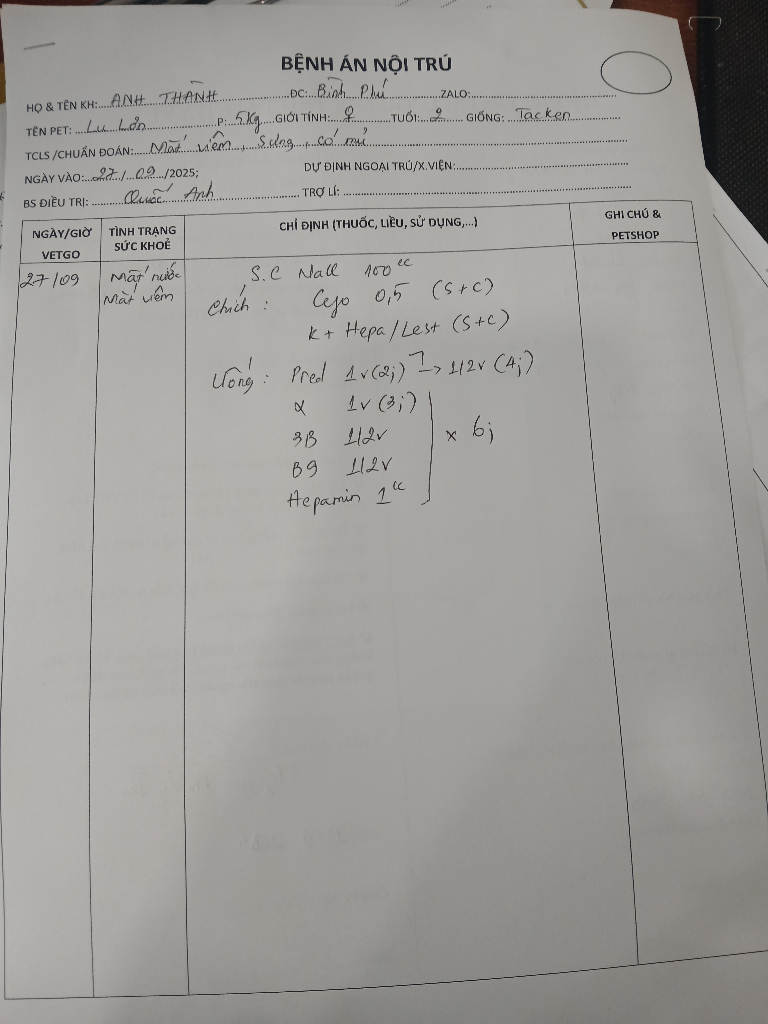 BỆNH ÁN NỘI TRÚ
HỌ & TÊN KH: ANH THÀNH ĐC: Bình Phú ZALO:
TÊN PET: Lu Lớn P: 5kg GIỚI TÍNH: ♀ TUỔI: 2 GIỐNG: Tacken
TCLS /CHUẨN ĐOÁN: Mắt viêm, Sưng, có mủ
NGÀY VÀO: 27/ 09 /2025; DỰ ĐỊNH NGOẠI TRÚ/X.VIỆN:
BS ĐIỀU TRỊ: Quốc Anh TRỢ LÍ:
NGÀY/GIỜ VETGO TÌNH TRẠNG SỨC KHOẺ CHỈ ĐỊNH (THUỐC, LIỀU, SỬ DỤNG,...) GHI CHÚ & PETSHOP
27/09 Mất nước S.C Nacl 100cc
Mắt viêm Chích : Cefo 0,5 (S+C)
K + Hepa/Lest (S+C)
Uống : Pred 1v(2j) -> 1/2v (4j)
α 1v (3j)
3B 1/2v x 6j
B9 1/2v
Hepamin 1cc